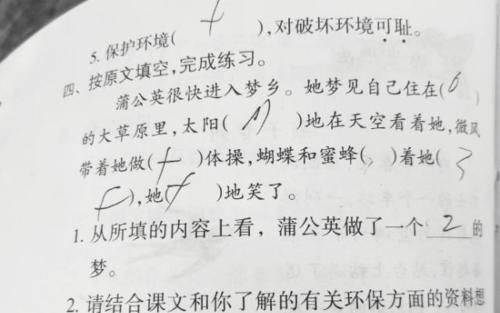 5. 保护环境( ),对破坏环境可耻。
四、按原文填空,完成练习。
蒲公英很快进入梦乡。她梦见自己住在(6)
的大草原里,太阳( )地在天空看着她,微风
带着她做( )体操,蝴蝶和蜜蜂( )着她(3
),她( )地笑了。
1. 从所填的内容上看,蒲公英做了一个 2 的
梦。
2. 请结合课文和你了解的有关环保方面的资料想